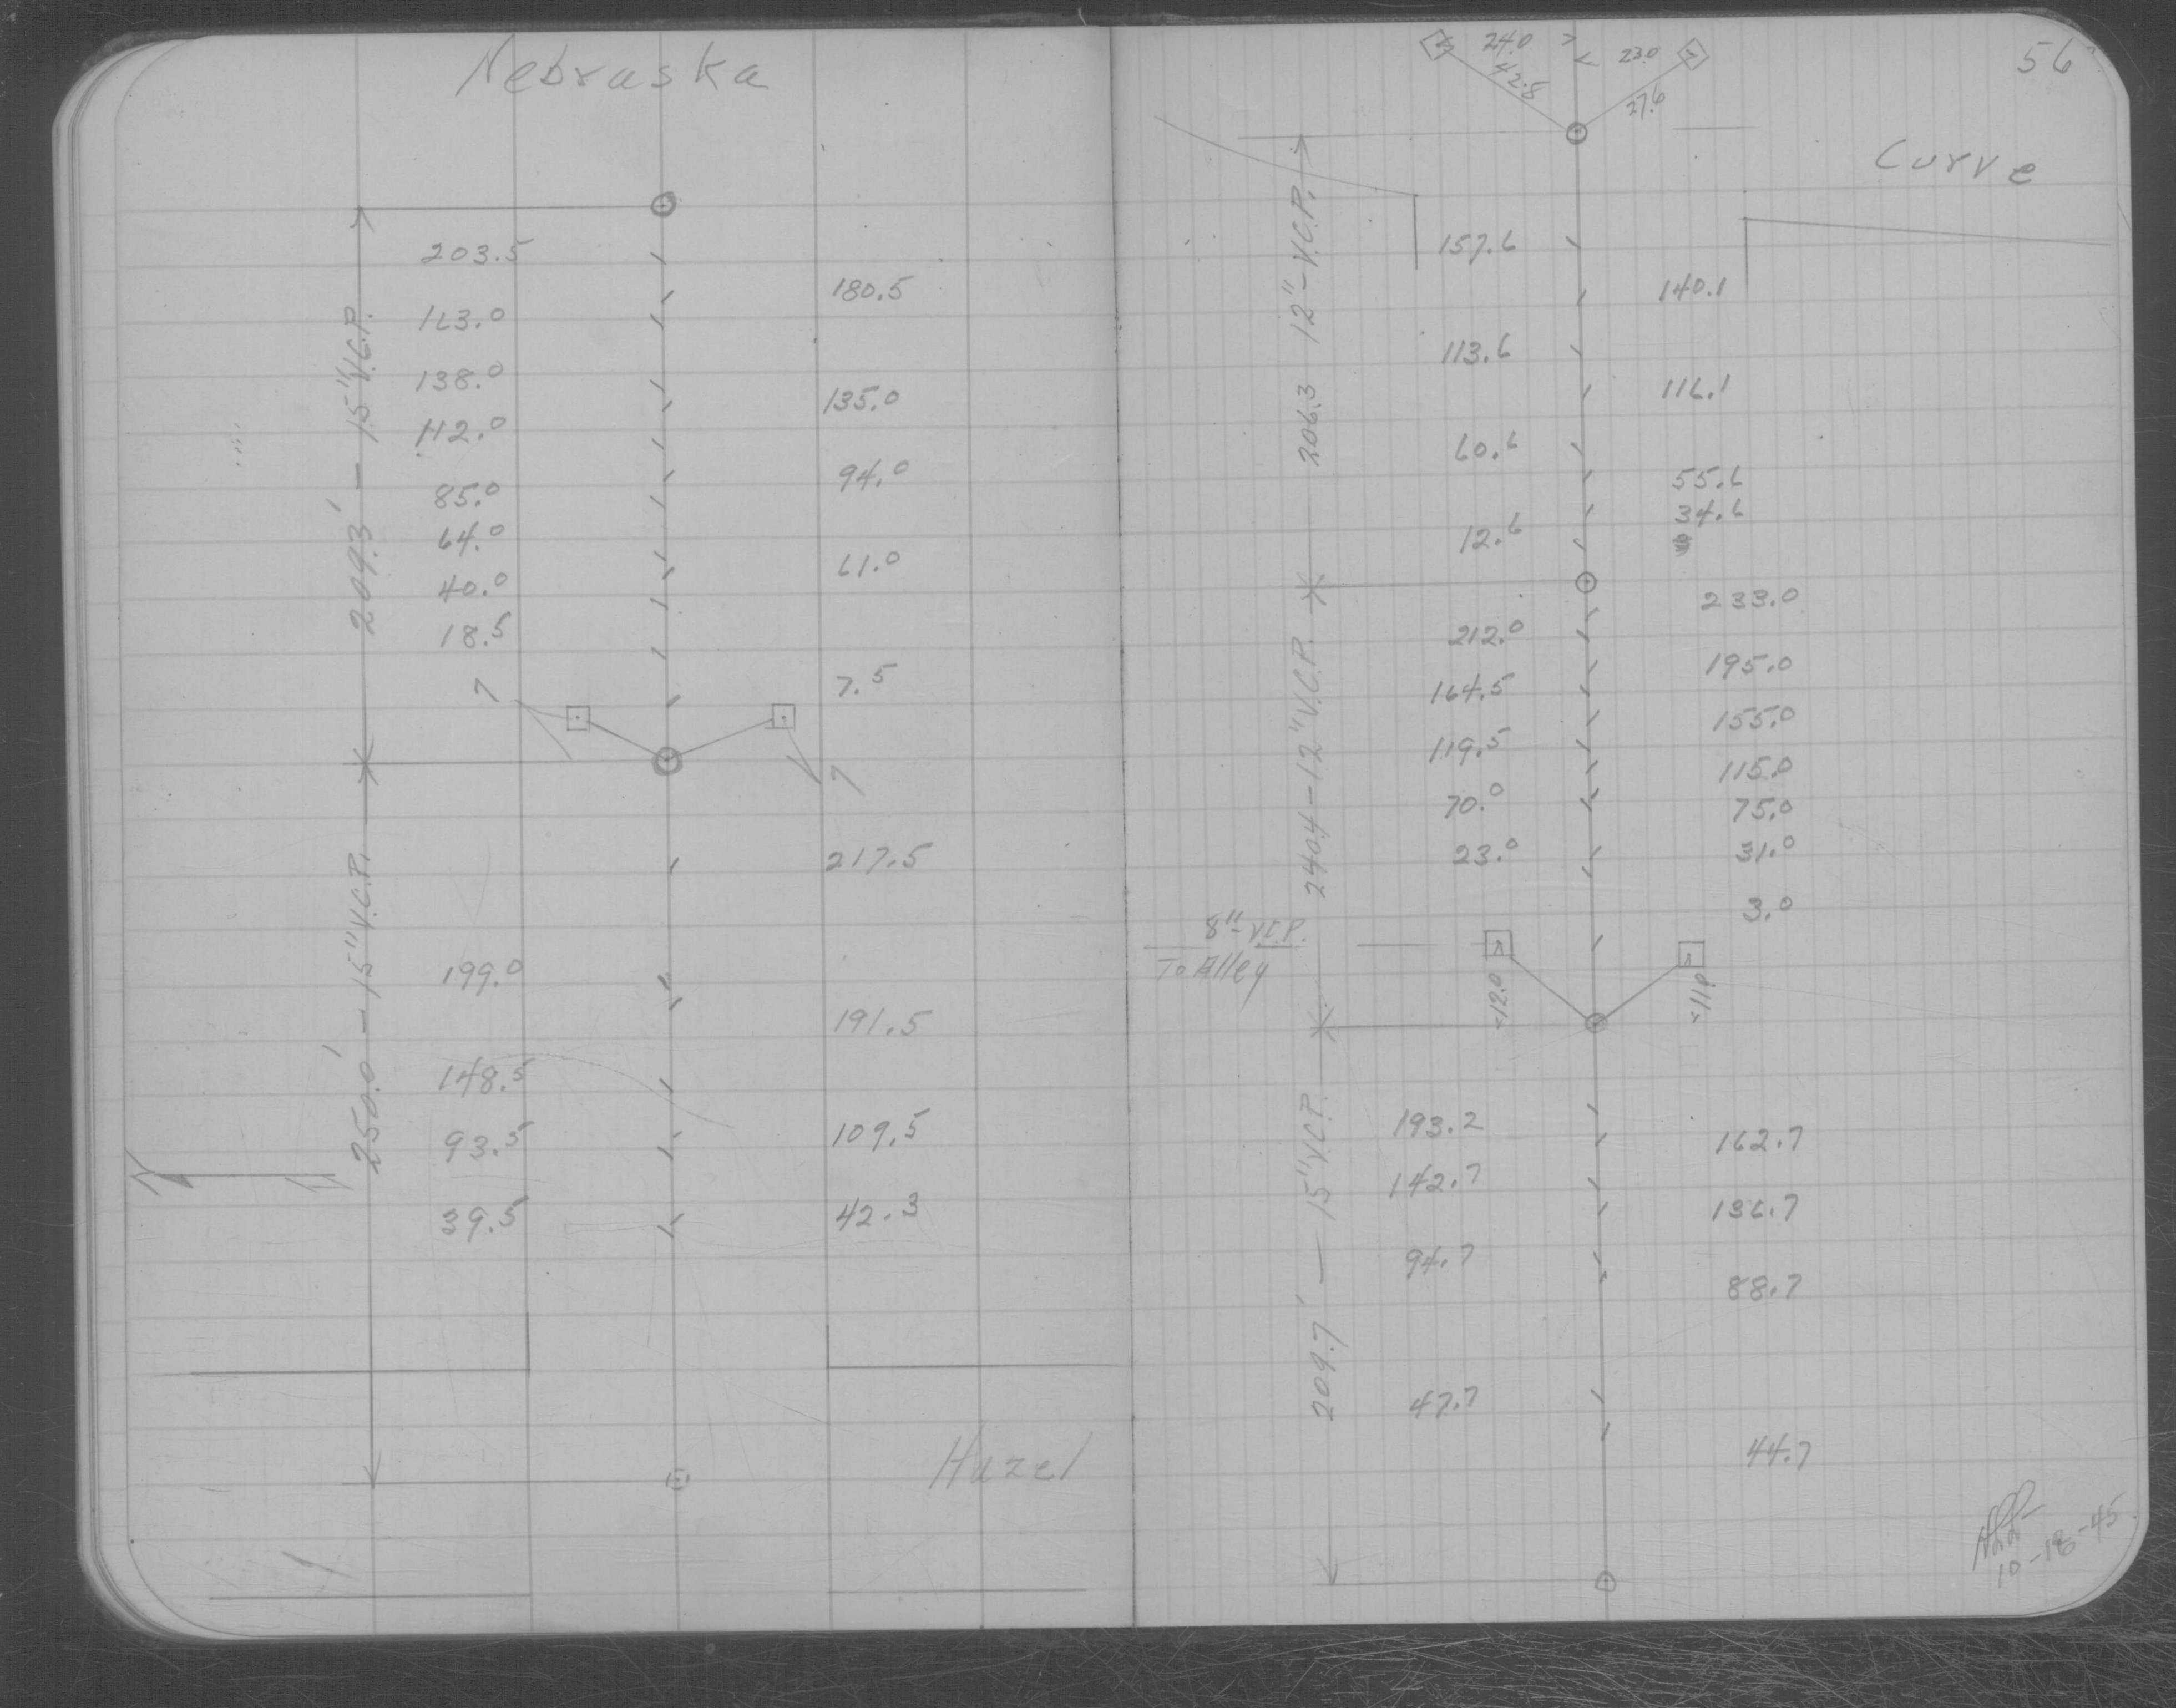 Nebraska
203.5
180.5
163.0
138.0
135.0
112.0
94.0
85.0
64.0
61.0
40.0
18.5
7.5
?
?
209.3' — 15" V.C.P.
217.5
199.0
191.5
148.5
109.5
93.5
42.3
39.5
250.0' — 15" V.C.P.
Hazel
56
24.0
23.0
42.8
27.6
Curve
157.6
140.1
113.6
116.1
60.6
55.6
34.6
12.6
206.3 12"-V.C.P.
233.0
212.0
195.0
164.5
155.0
119.5
115.0
70.0
75.0
23.0
31.0
3.0
240.4-12" V.C.P.
8"-V.C.P.
To Alley
<12.0
<11.0
193.2
162.7
142.7
136.7
94.7
88.7
47.7
44.7
209.7' — 15" V.C.P.
10-18-45